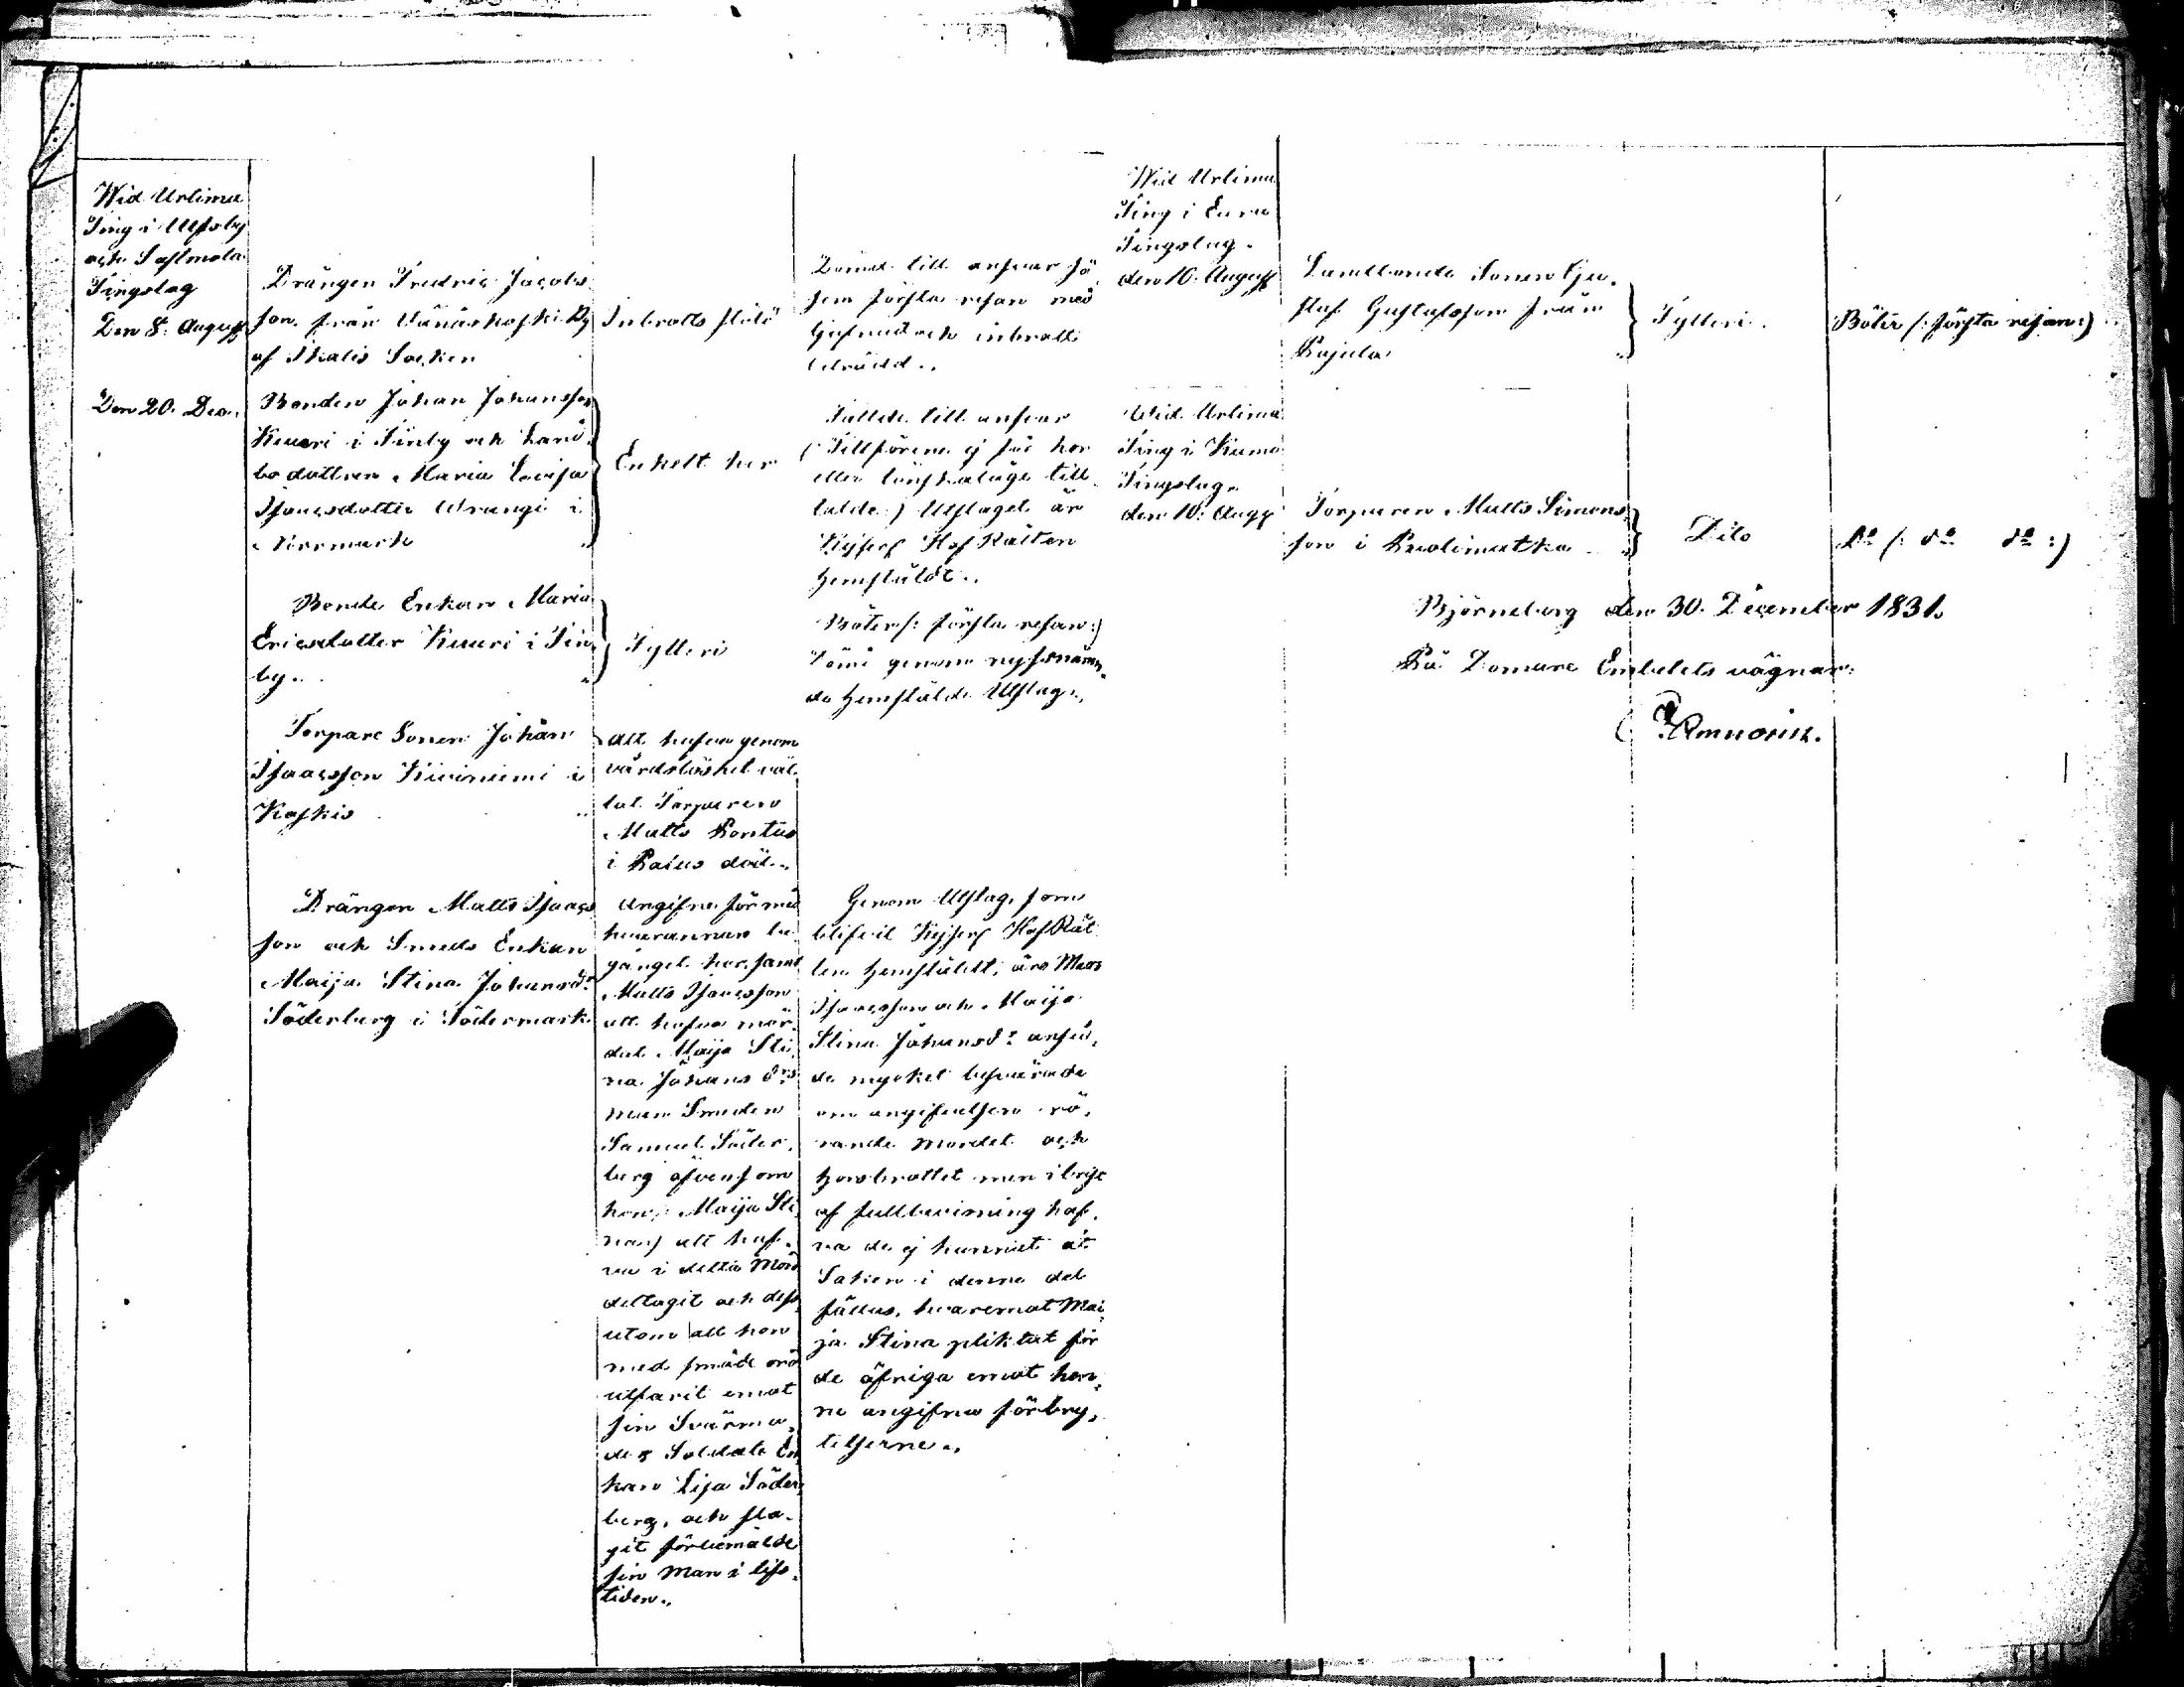 Wid Urtima
Ting i Ulfsby
och Sastmola
Tingslag
Den 8. Augusti
Drängen Fredric Jacobs
son från Vänäskoski By
af Ikalis Socken
Inbrotts stöld
Dömd till ansvar så
som första resan med
tjufnad och inbrott
beträdd.
Den 20. Dec.
Bonden Johan Johansson
Kuuri i Finby och Land
bo dottren Maria Lovisa
Isaacsdotter Wrangi i
Norrmark
Enkelt hor
Fällde till ansvar
(Tillförene ej för hor
eller lönskaläge till
talde) Utslaget är
Kejserl Hof Rätten
hemstäldt.
Bonde Enkan Maria
Ericsdotter Kuuri i Fin
by.
Fylleri
Böter /: första resan :/
Dömd genom nyssnämn
de hemstälde Utslag.
Torpare Sonen Johan
Isaacsson Kiviniemi i
Kaskis
Att hafva genom
vårdslöshet vål
lat Torparen
Matts Pontus
i Ratus död.
Drängen Matts Isaacs
son och Smeds Enkan
Maija Stina Johansdr
Söderberg i Södermark
Angifne för med
hvarannan be
gånget hor, samt
Matts Isaacsson
att hafva mör
dat Maija Sti
na Johans drs
man Smeden
Samuel Söder
berg äfvensom
hon (Maija Sti
na) att haf
va i detta Mord
deltagit och dess
utom att hon
med smäde ord
utfarit emot
sin Svärmo
der Soldats En
kan Lisa Söder
berg, och sla
git förbemälde
sin Man i lifs
tiden.
Genom Utslag, som
blifvit Kejserl Hof Rät
ten hemstäldt, äro Matts
Isaacsson och Maija
Stina Johansdr ansed
de mycket besvärade
om angifvelsen rö
rande Mordet och
horsbrottet men i brist
af full bevisning haf
va de ej kunnat åt
Saken i denne del
fällas, hvaremot Mai
ja Stina pliktat för
de öfriga emot hen
ne angifna förbry
telserne.
Wid Urtima
Ting i Eura
Tingslag
den 10. Augusti
Landbonde Sonen Gu
staf Gustafsson från
Pajula
Fylleri.
Böter /: första resan :/
Wid Urtima
Ting i Kumo
Tingslag
den 10. Aug
Torparen Matts Simons
son i Puolimatka
Dito
Do /: do do :/
Björneborg den 30. December 1831.
På Domare Embetets vägnar: